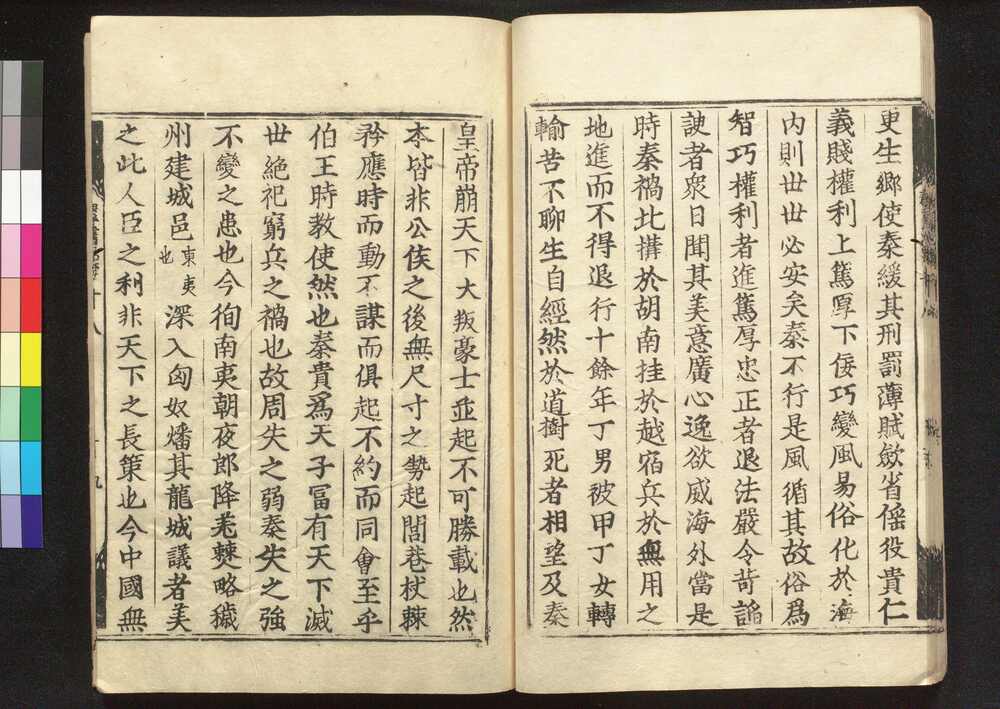 更生鄉使秦緩其刑罰薄賦歛省傜役貴仁
義賤權利上篤厚下佞巧變風易俗化於海
內則世世必安矣秦不行是風循其故俗爲
智巧權利者進篤厚忠正者退法嚴令苛謟
諛者衆日聞其美意廣心逸欲威海外當是
時秦禍北搆於胡南挂於越宿兵於無用之
地進而不得退行十餘年丁男被甲丁女轉
輸苦不聊生自經然於道樹死者相望及秦
皇帝崩天下大叛豪士並起不可勝載也然
本皆非公侯之後無尺寸之勢起閭巷杖棘
矜應時而動不謀而俱起不約而同會至乎
伯王時教使然也秦貴爲天子冨有天下滅
世絶祀窮兵之禍也故周失之弱秦失之強
不變之患也今徇南夷朝夜郎降羌僰略薉
州建城邑東夷也深入匈奴燔其龍城議者美
之此人臣之利非天下之長策也今中國無
十八
十九